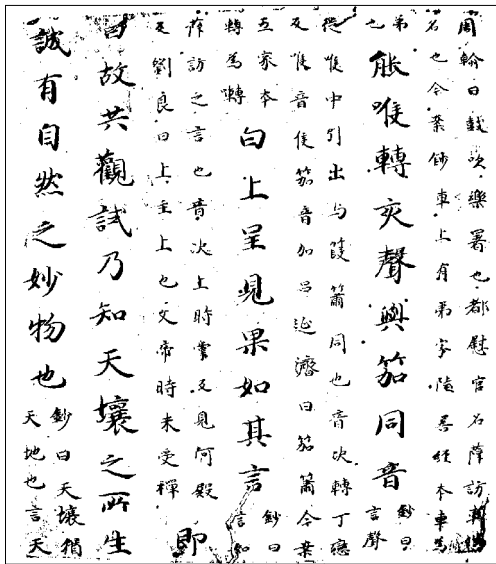 周翰曰鼓吹樂署也都慰官名薛訪車
名也今案鈔車上有弟字陸善經本車為
弟
也
能喉轉夾聲與笳同音
鈔曰
言聲
從喉中引出与葭簫同也音决轉丁戀
反喉音侯笳音加呂延濟曰笳簫今案
五家本
轉為囀
白上呈見果如其言
鈔曰
言知
薛訪之言也音决上時掌反見何殿
反劉良曰上主上也文帝時未受禪
即
日故共觀試乃知天壤之所生
誠有自然之妙物也
鈔曰天壤猶
天地也言天